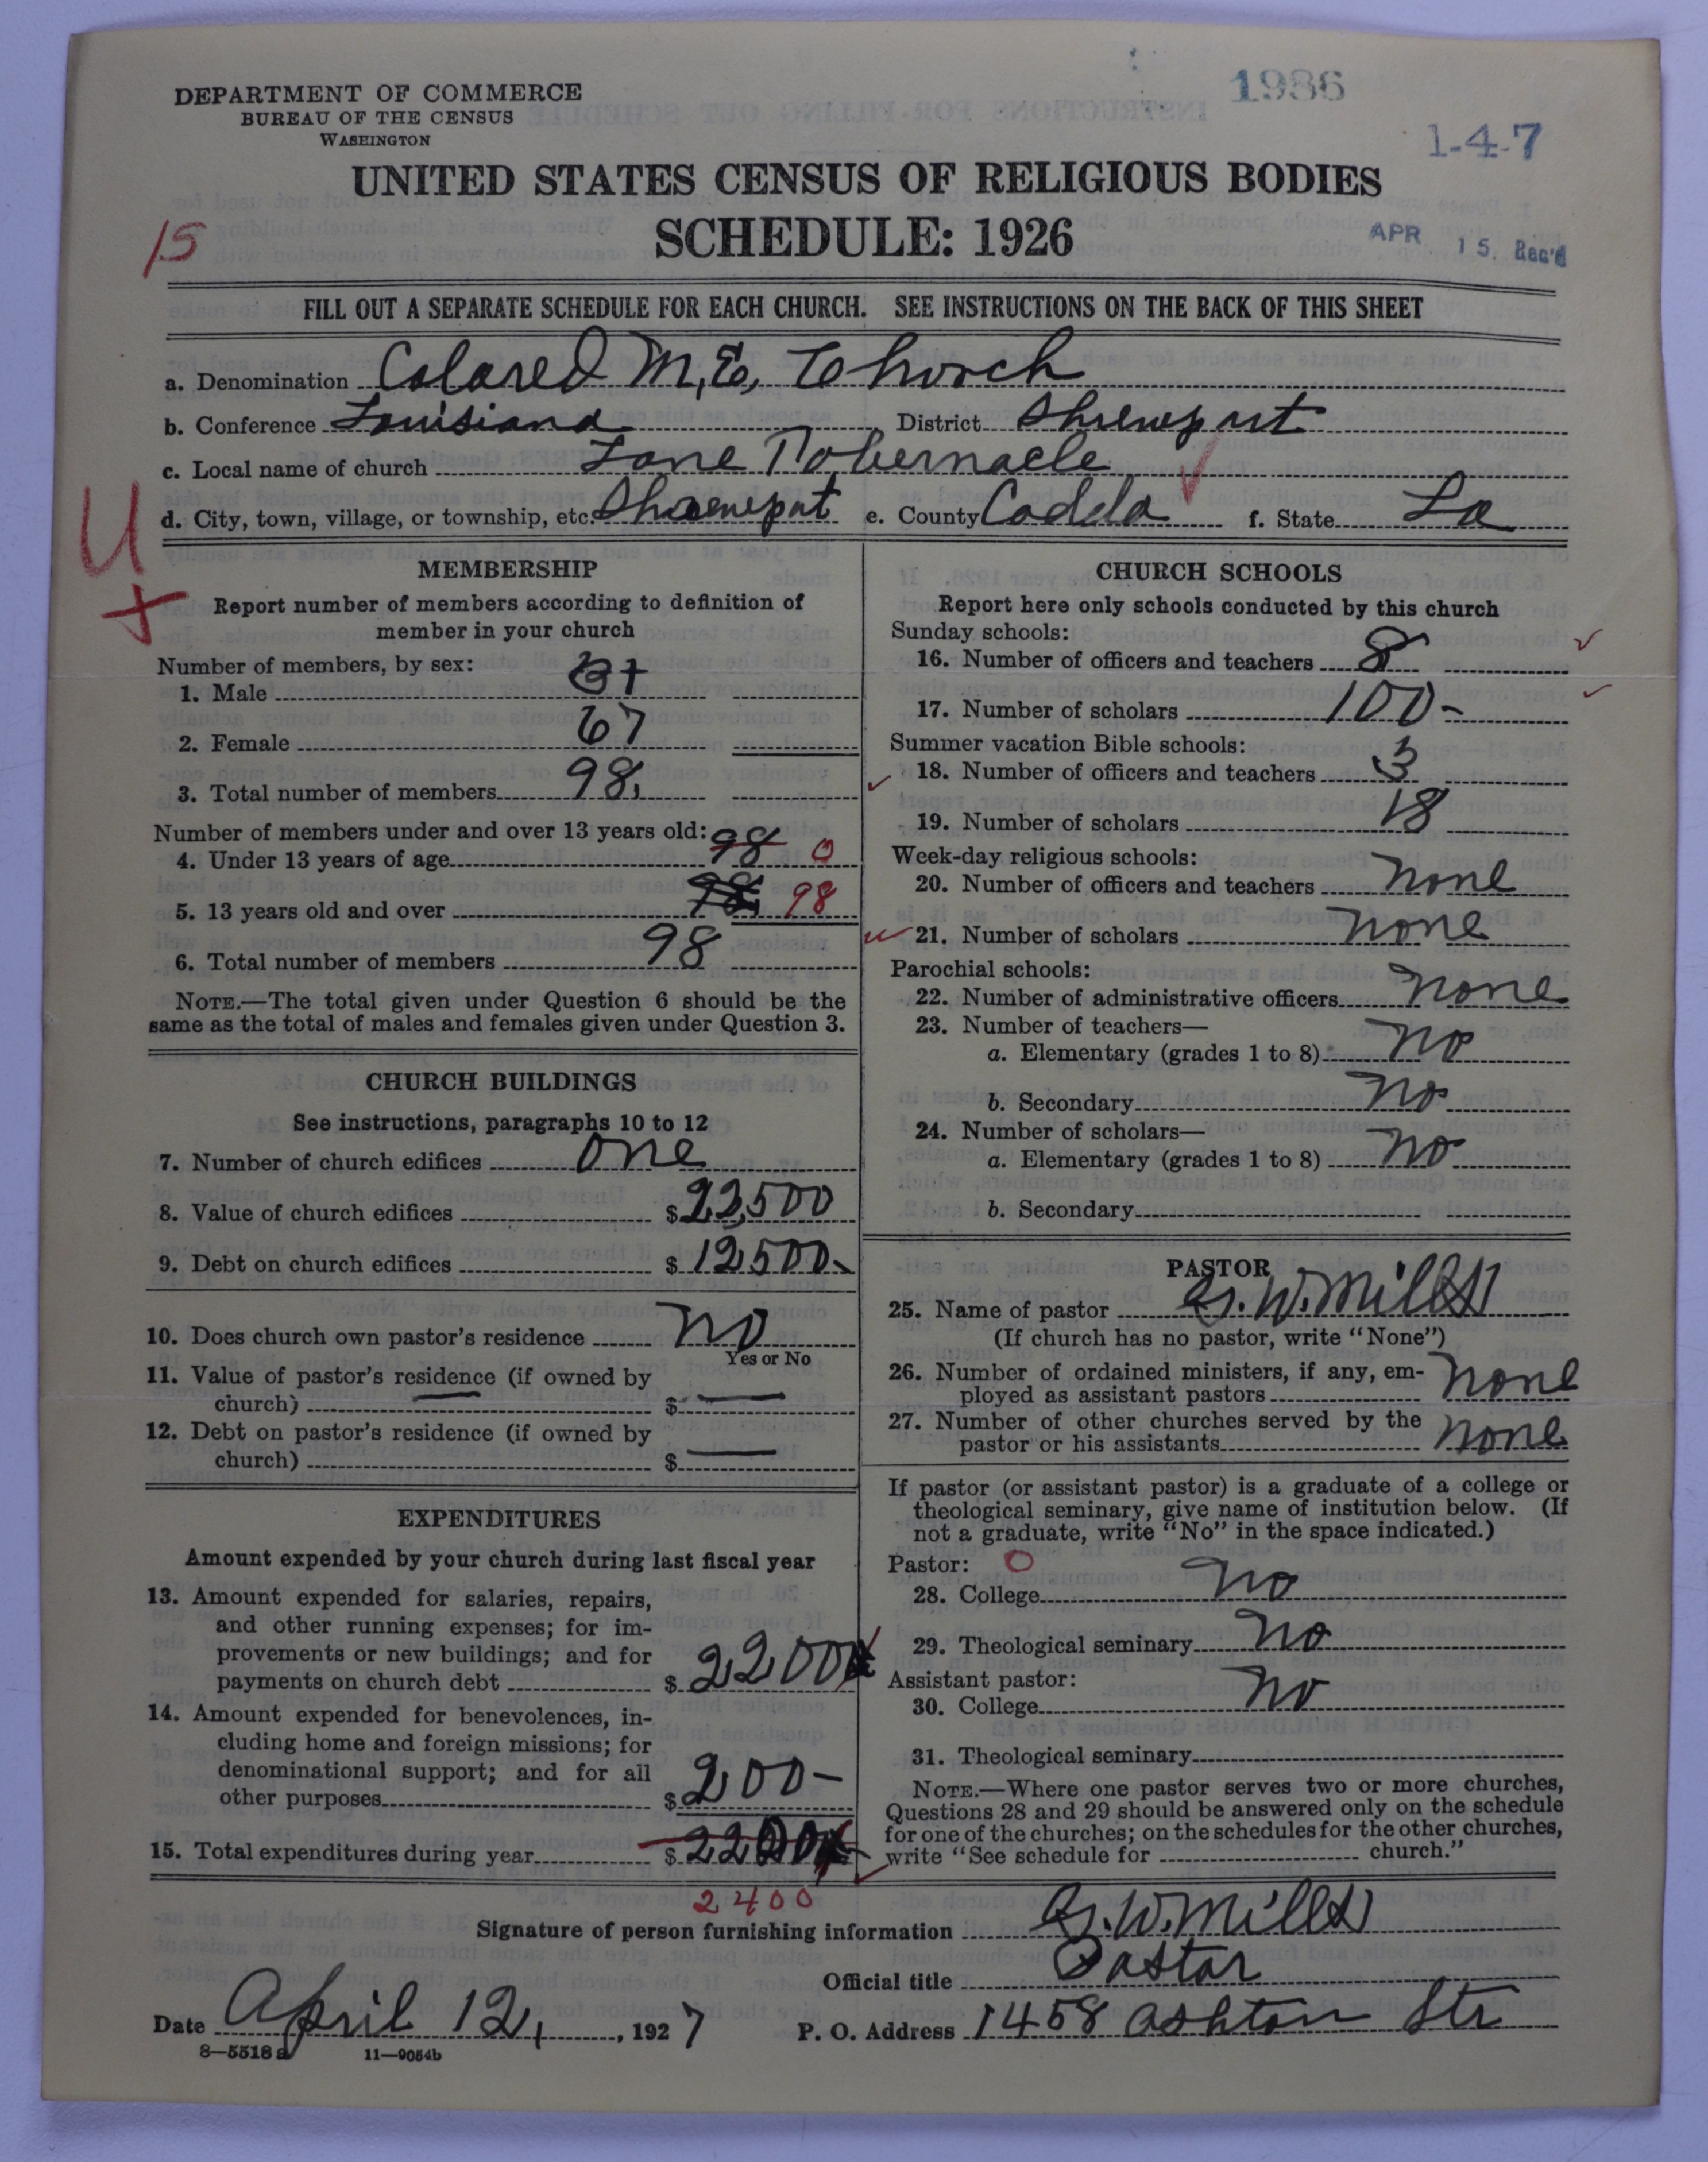 1986
DEPARTMENT OF COMMERCE
BUREAU OF THE CENSUS
WASHINGTON
1-4-7
UNITED STATES CENSUS OF RELIGIOUS BODIES
SCHEDULE: 1926
15
APR 15 Rec'd
FILL OUT A SEPARATE SCHEDULE FOR EACH CHURCH. SEE INSTRUCTIONS ON THE BACK OF THIS SHEET
a. Denomination Colored M.E. Church
b. Conference Louisiana District Shreveport
c. Local name of church Lane Tabernacle
d. City, town, village, or township, etc. Shreveport e. County Caddo f. State La
U
+
MEMBERSHIP
Report number of members according to definition of
member in your church
Number of members, by sex:
1. Male 31
2. Female 67
3. Total number of members 98
Number of members under and over 13 years old:
4. Under 13 years of age 98 0
5. 13 years old and over 98 98
6. Total number of members 98
NOTE.—The total given under Question 6 should be the
same as the total of males and females given under Question 3.
CHURCH BUILDINGS
See instructions, paragraphs 10 to 12
7. Number of church edifices one
8. Value of church edifices $23,500
9. Debt on church edifices $12,500
10. Does church own pastor's residence no
Yes or No
11. Value of pastor's residence (if owned by
church) $ —
12. Debt on pastor's residence (if owned by
church) $ —
EXPENDITURES
Amount expended by your church during last fiscal year
13. Amount expended for salaries, repairs,
and other running expenses; for im-
provements or new buildings; and for
payments on church debt $2200
14. Amount expended for benevolences, in-
cluding home and foreign missions; for
denominational support; and for all
other purposes $200-
15. Total expenditures during year $2200
2400
CHURCH SCHOOLS
Report here only schools conducted by this church
Sunday schools:
16. Number of officers and teachers 8
17. Number of scholars 100-
Summer vacation Bible schools:
18. Number of officers and teachers 3
19. Number of scholars 18
Week-day religious schools:
20. Number of officers and teachers none
21. Number of scholars none
Parochial schools:
22. Number of administrative officers none
23. Number of teachers—
a. Elementary (grades 1 to 8) no
b. Secondary no
24. Number of scholars—
a. Elementary (grades 1 to 8) no
b. Secondary
PASTOR
25. Name of pastor G. W. Mills
(If church has no pastor, write "None")
26. Number of ordained ministers, if any, em-
ployed as assistant pastors none
27. Number of other churches served by the
pastor or his assistants none
If pastor (or assistant pastor) is a graduate of a college or
theological seminary, give name of institution below. (If
not a graduate, write "No" in the space indicated.)
Pastor: 0
28. College no
29. Theological seminary no
Assistant pastor:
30. College no
31. Theological seminary
NOTE.—Where one pastor serves two or more churches,
Questions 28 and 29 should be answered only on the schedule
for one of the churches; on the schedules for the other churches,
write "See schedule for church."
Signature of person furnishing information G. W. Mills
Official title Pastor
Date April 12, 1927 P. O. Address 1458 Ashton Str
8—5518a 11—9054b